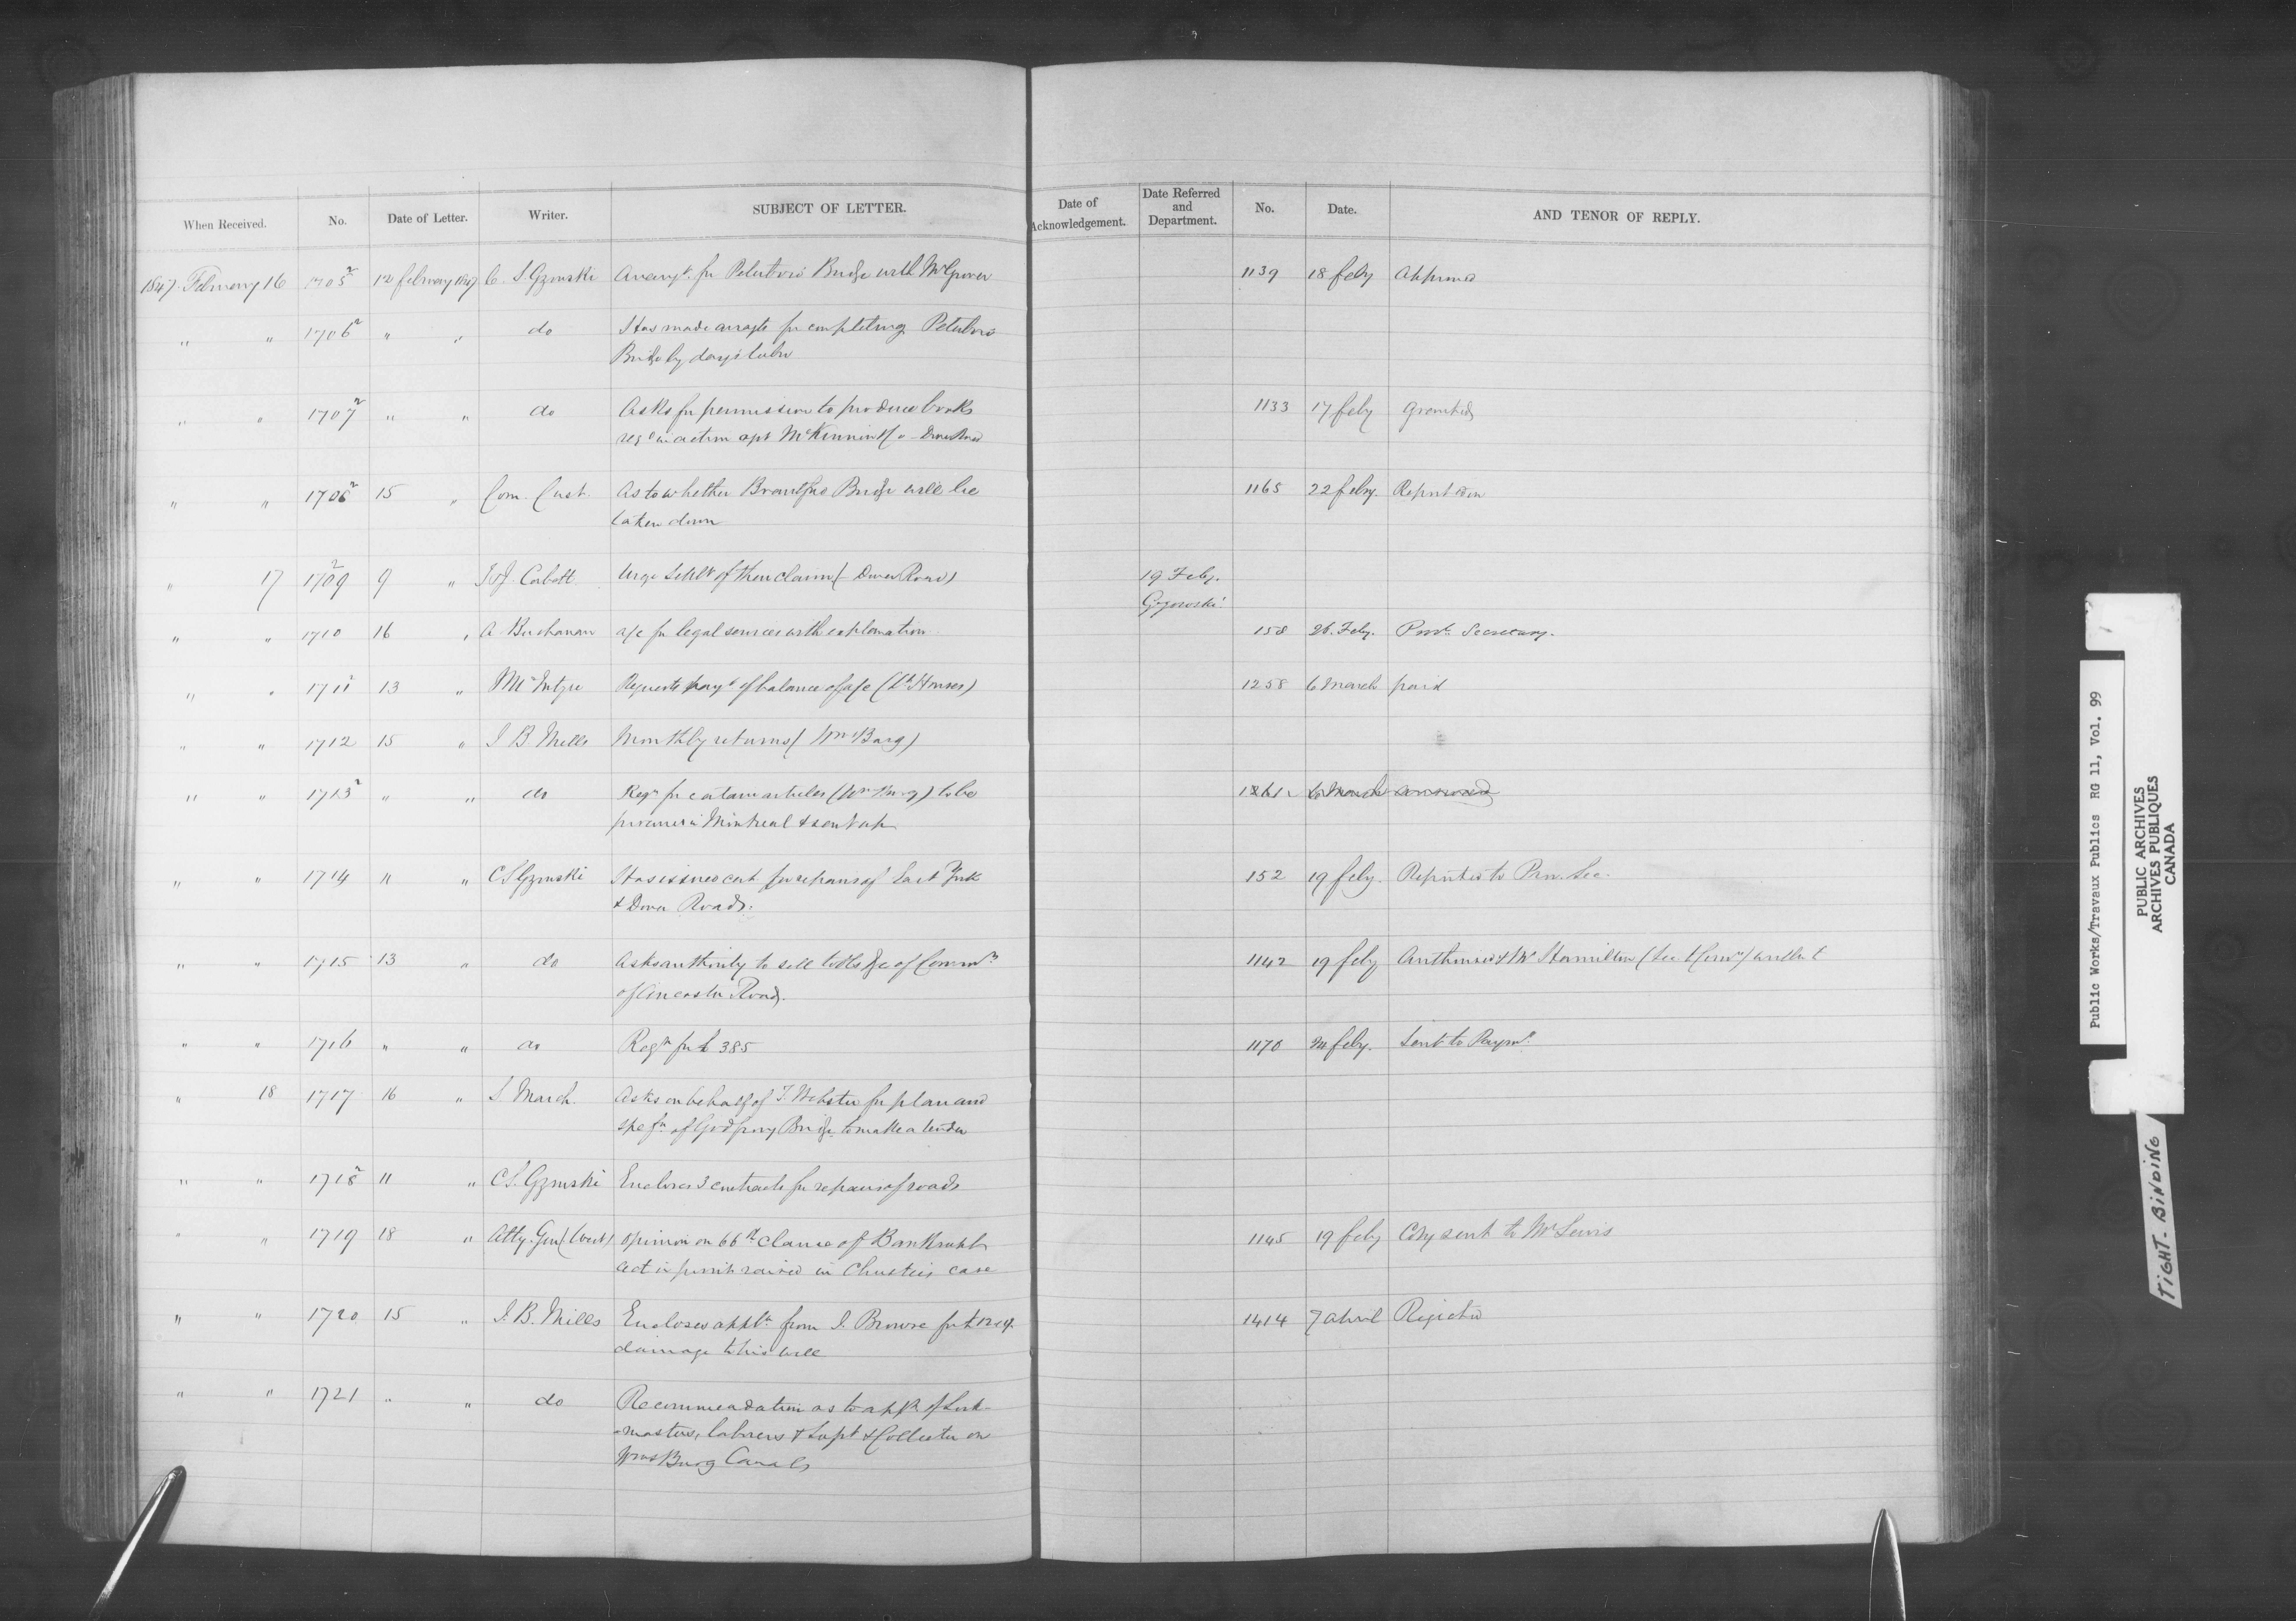 When Received. No. Date of Letter. Writer. SUBJECT OF LETTER. Date of Acknowledgement. Date Referred and Department. No. Date. AND TENOR OF REPLY.
1847 February 16 1705² 12 february 1847 C. S. Gzowski Arrangt. for Peterboro Bridge with Mr Grover 1139 18 feby Approved
" " 1706² " " do Has made arragts for completing Peterboro
Bridge by days labor
" " 1707² " " do Asks for permission to produce books 1133 17 feby Granted
reqd in action agst McKinnin &c - Dover Road
" " 1708² 15 " Com. Cust. As to whether Brantford Bridge will be 1165 22 feby. Report
taken down
" 17 1709² 9 " J & J. Corbett Urge Settlt of their claim (- Dover Road) 19 Feby.
Gzowski
" " 1710 16 " A. Buchanan a/c for legal services with explanation 158 26. Feby. Prov. Secretary.
" " 1711 13 " McIntyre Requests payt of balance of a/c (Lt Houses) 1258 6 March paid
" " 1712 15 " J. B. Mills Monthly returns (WmsBurg)
" " 1713² " " do Reqn for certain articles (Wms Burg) to be 1261 6 March answered
procured in Montreal & sent up
" " 1714 11 " C S Gzowski Has issued cert. for repairs of East York 152 19 feby. Reported to Prov. Sec.
& Dover Roads.
" " 1715 13 " do Asks authority to sell tolls &c of Commrs 1142 19 feby Authorised & Mr Hamilton (Sec Comrs)
of Ancaster Road.
" " 1716 " " do Reqn for £ 385 1170 feby. Sent to Paymr.
" 18 1717 16 " S March. Asks on behalf of T. Webster for plan and
spefn of Godfroy Bridge to make a tender
" " 1718² 11 " C S. Gzowski Encloses 3 contracts for repairs of roads
" " 1719 18 " Atty. Gen (West) Opinion on 66th clause of Bankrupt 1145 19 feby Copy sent to Mr Lewis
act in points raised in Christies case
" " 1720 15 " J. B. Mills Encloses applt from J. Browse for £ 12 & 4. 1414 7 April Rejected
damage to his well
" " 1721 " " do Recommendation as to appt of Lock-
-masters, laborers & Supt & Collector on
WmsBurg Canals
Public Works/Travaux Publics RG 11, Vol. 99
PUBLIC ARCHIVES
ARCHIVES PUBLIQUES
CANADA
TIGHT. BINDING